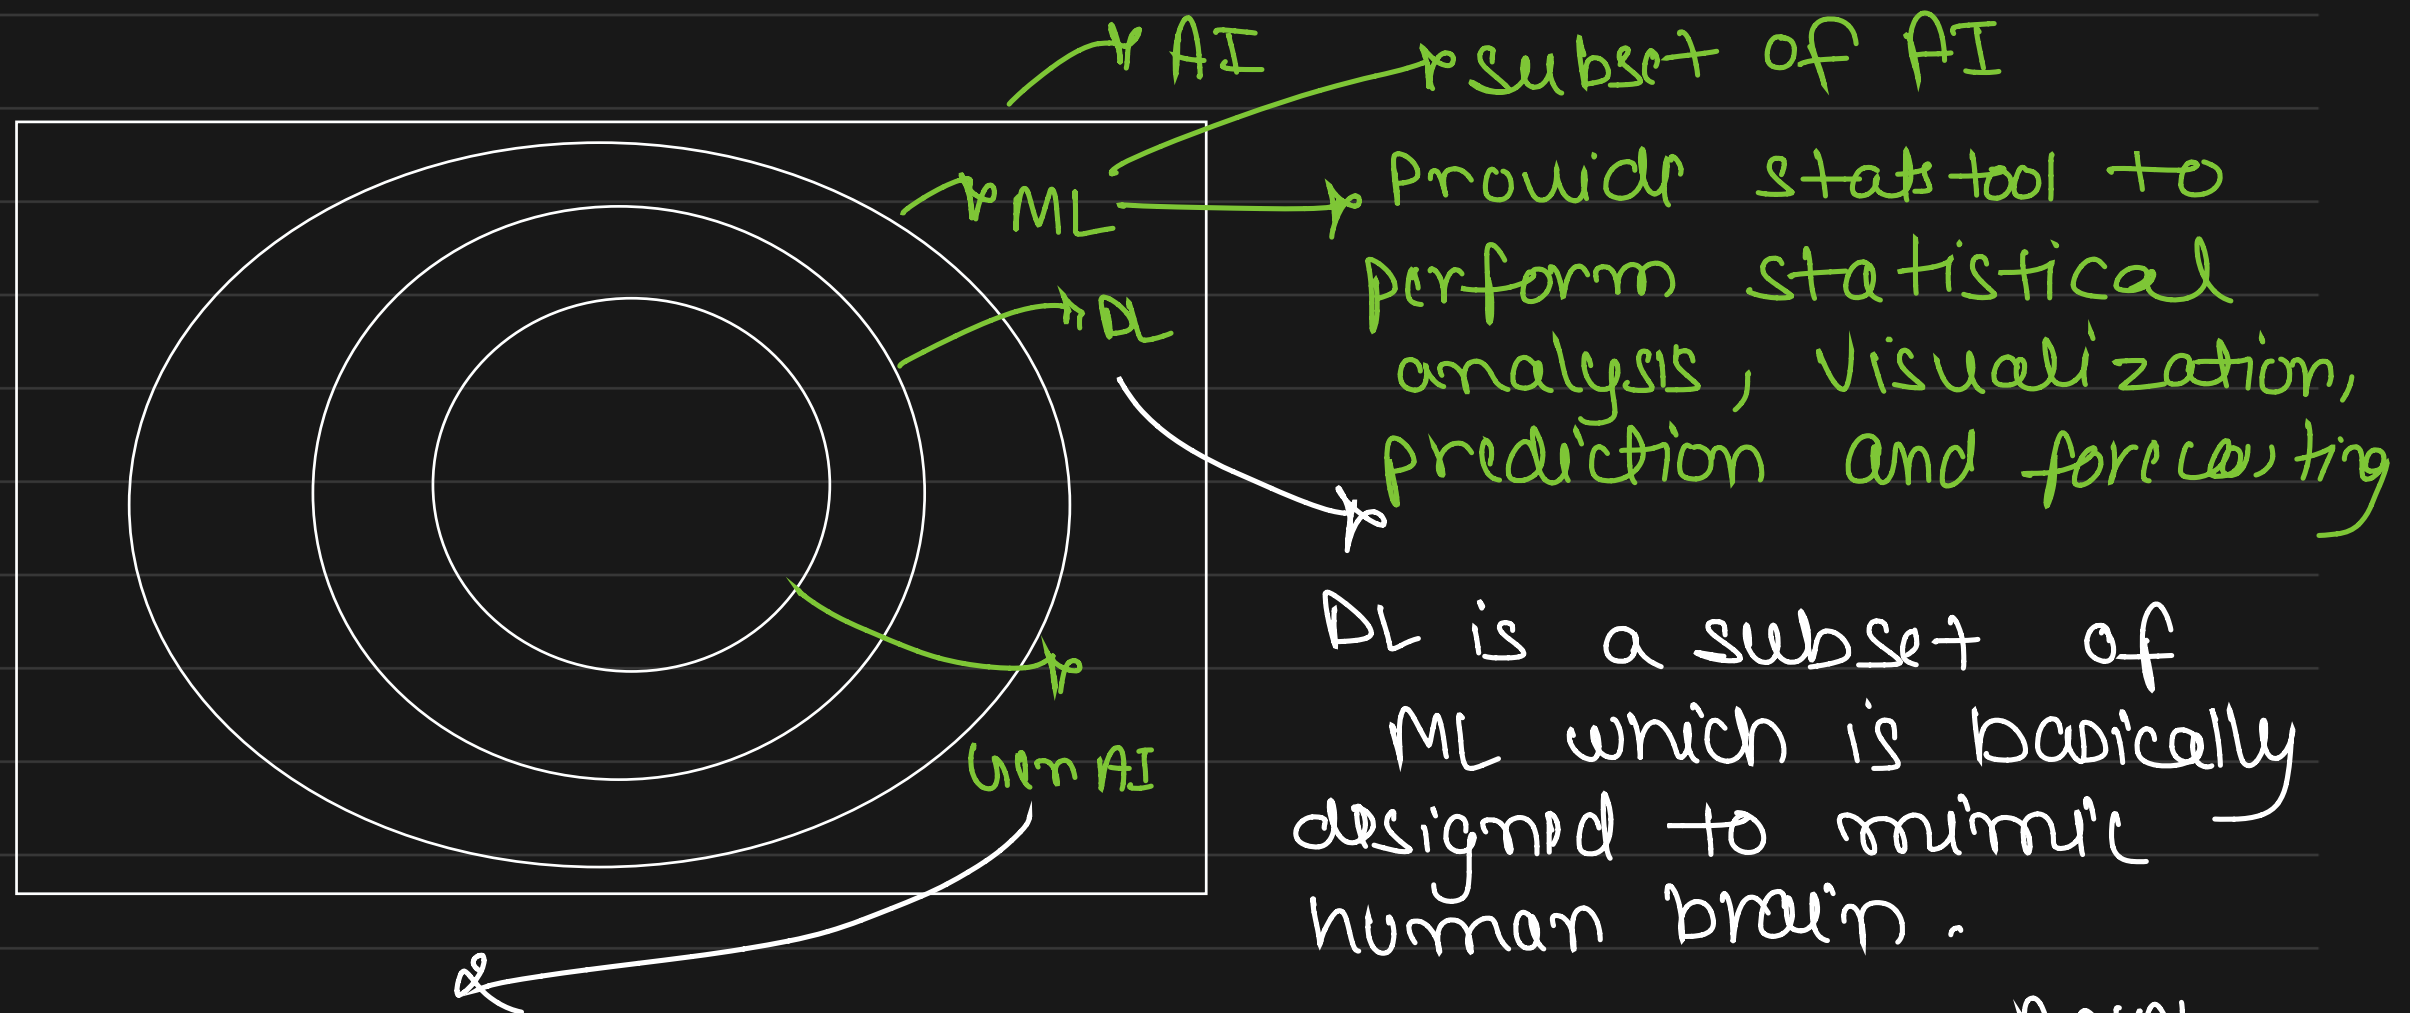 AI
subset of AI
ML
Provide stats tool to
perform statistical
analysis, Visualization,
prediction and forecasting
DL
DL is a subset of
ML which is basically
designed to mimic
human brain.
Gen AI